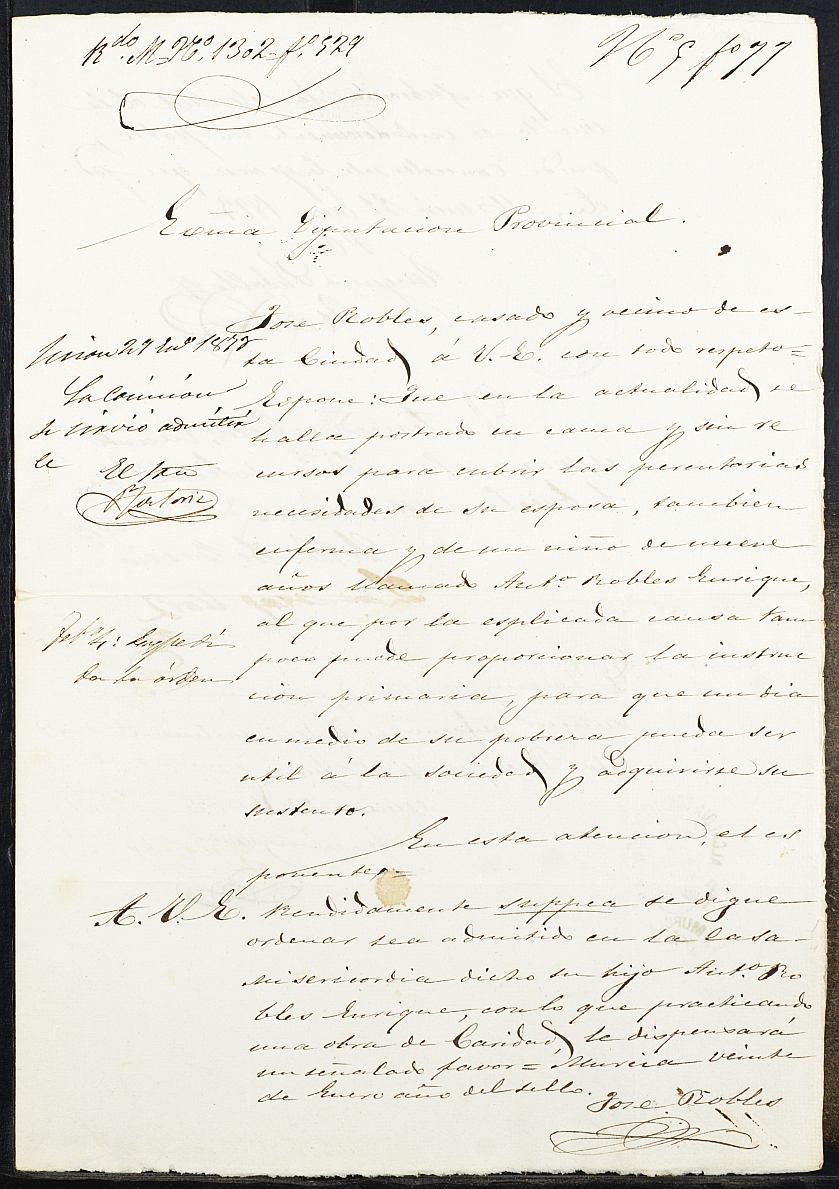 Rdo. M. Nº. 1302 - fº. 529
Nº 9 fº 77
Exma Diputacion Provincial.
Jose Robles, casado y vecino de es-
ta Ciudad á V. E. con todo respeto=
Espone: Que en la actualidad se
halla postrado en cama y sin re
cursos para cubrir las perentorias
necesidades de su esposa, tambien
enferma y de un niño de nueve
años llamado Antº. Robles Enrique,
al que por la esplicada causa tam
poco puede proporcionar la instruc
cion primaria, para que un dia
en medio de su pobreza pueda ser
util á la sociedad y adquirirse su
sustento.
En esta atencion, el es
ponente=
A. V. E. Rendidamente suppca se digne
ordenar sea admitido en la Casa-
Misericordia dicho su hijo Antº. Ro
bles Enrique, con lo que practicando
una obra de Caridad, le dispensará
un señalado favor= Murcia veinte
de Enero año del sello.
Jose Robles
Sesion 27 Enº 187
La Comision
se sirvió admitir
le
El Srio
4: Espedi
da la órden
MUR